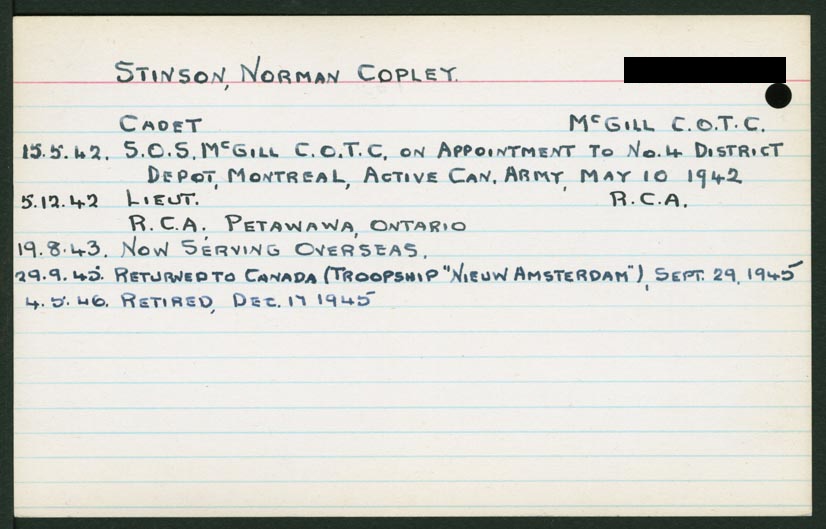 STINSON, NORMAN COPLEY.
CADET McGILL C.O.T.C.
15.5.42. S.O.S. McGILL C.O.T.C. ON APPOINTMENT TO No.4 DISTRICT
DEPOT, MONTREAL, ACTIVE CAN. ARMY, MAY 10 1942
5.12.42 LIEUT. R.C.A.
R.C.A. PETAWAWA, ONTARIO
19.8.43. NOW SERVING OVERSEAS.
29.9.45. RETURNED TO CANADA (TROOPSHIP "NIEUW AMSTERDAM"), SEPT. 29, 1945
4.5.46. RETIRED, DEC. 17 1945